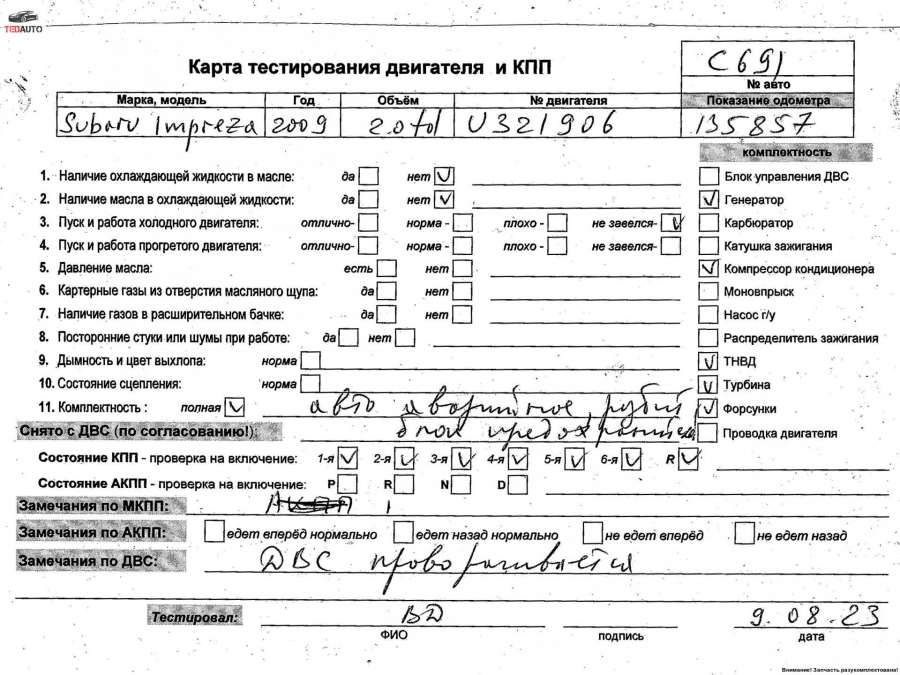 TEDAUTO
Карта тестирования двигателя и КПП
C691
№ авто
Марка, модель Год Объём № двигателя Показание одометра
Subaru Impreza 2009 2.0td U321906 135857
комплектность
1. Наличие охлаждающей жидкости в масле: да нет V Блок управления ДВС
2. Наличие масла в охлаждающей жидкости: да нет V V Генератор
3. Пуск и работа холодного двигателя: отлично- норма - плохо - не завелся- V Карбюратор
4. Пуск и работа прогретого двигателя: отлично- норма - плохо - не завелся- Катушка зажигания
5. Давление масла: есть нет V Компрессор кондиционера
6. Картерные газы из отверстия масляного щупа: да нет Моновпрыск
7. Наличие газов в расширительном бачке: да нет Насос г/у
8. Посторонние стуки или шумы при работе: да нет Распределитель зажигания
9. Дымность и цвет выхлопа: норма V ТНВД
10. Состояние сцепления: норма V Турбина
11. Комплектность : полная V авто аварийное, V Форсунки
Снято с ДВС (по согласованию!): блок Проводка двигателя
Состояние КПП - проверка на включение: 1-я V 2-я V 3-я V 4-я V 5-я V 6-я V R V
Состояние АКПП - проверка на включение: P R N D
Замечания по МКПП:
Замечания по АКПП: едет вперёд нормально едет назад нормально не едет вперёд не едет назад
Замечания по ДВС: ДВС проворачивается
Тестировал: ВД 9.08.23
ФИО подпись дата
Внимание! Запчасть разукомплектована!